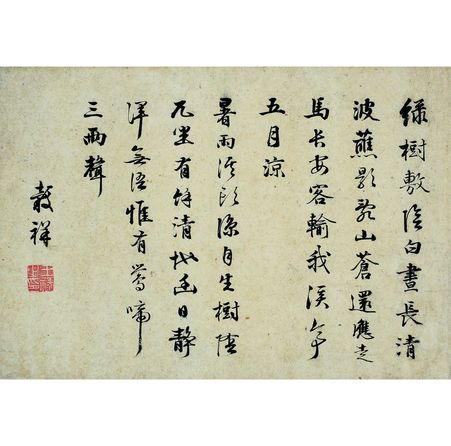 綠樹敷陰白晝長清
波蘸影山蒼還應走
馬長安客輸我溪亭
五月涼
暑雨涼自生樹陰
兀坐有餘清地幽日靜
渾無語惟有鶯啼
三兩聲
穀祥